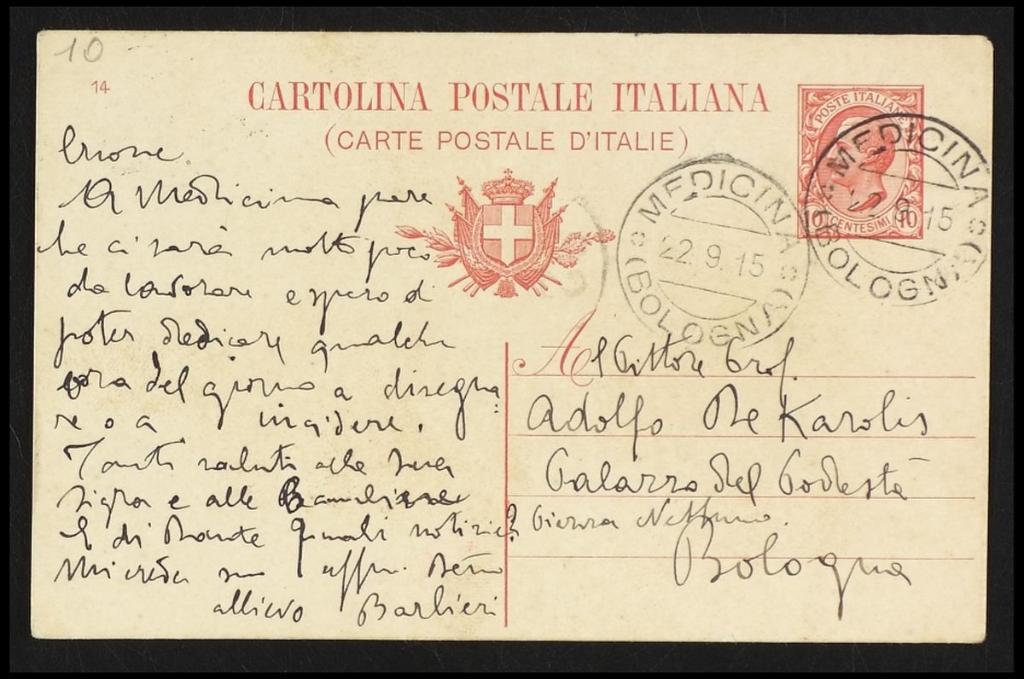 10
14
CARTOLINA POSTALE ITALIANA
(CARTE POSTALE D'ITALIE)
POSTE ITALIANE
CENTESIMI 10
MEDICINA
22.9.15
(BOLOGNA)
MEDICINA
22.9.15
(BOLOGNA)
A Medicina pare
che ci sarà molto poco
da lavorare e spero di
poter dedicare qualche
ora del giorno a disegna
re o a incidere.
Tanti saluti alla sua
sigra e alle
E di Dante quali notizie?
Mi creda suo affmo. Demo
allievo Barbieri
Al Pittore Prof.
Adolfo De Karolis
Palazzo del Podestà
Piazza Nettuno.
Bologna